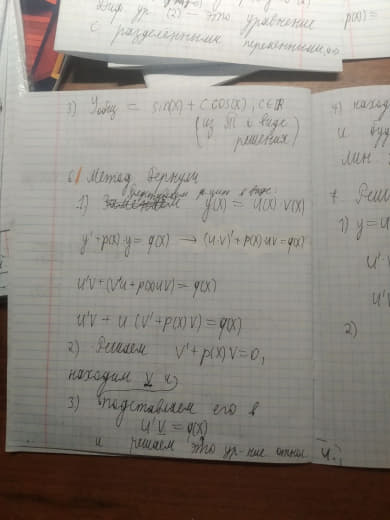 Диф. ур. (2) - это уравнение p(x) =
с разделёнными переменными
3) Yобщ = sin(x) + C cos(x), C∈R
(из III в виде
решения)
6. Метод Бернули
1) y(x) = u(x) · v(x)
y' + p(x) · y = q(x) → (u·v)' + p(x)·uv = q(x)
u'v + (v'u + p(x)uv) = q(x)
u'v + u (v' + p(x)v) = q(x)
2) Решаем v' + p(x)v = 0,
находим v
3) подставляем его в
u'v = q(x)
и решаем это ур-ние относ. u.
4) нахо
и буд
лин.
7. Реши
1) y = u
u'
u'
2)